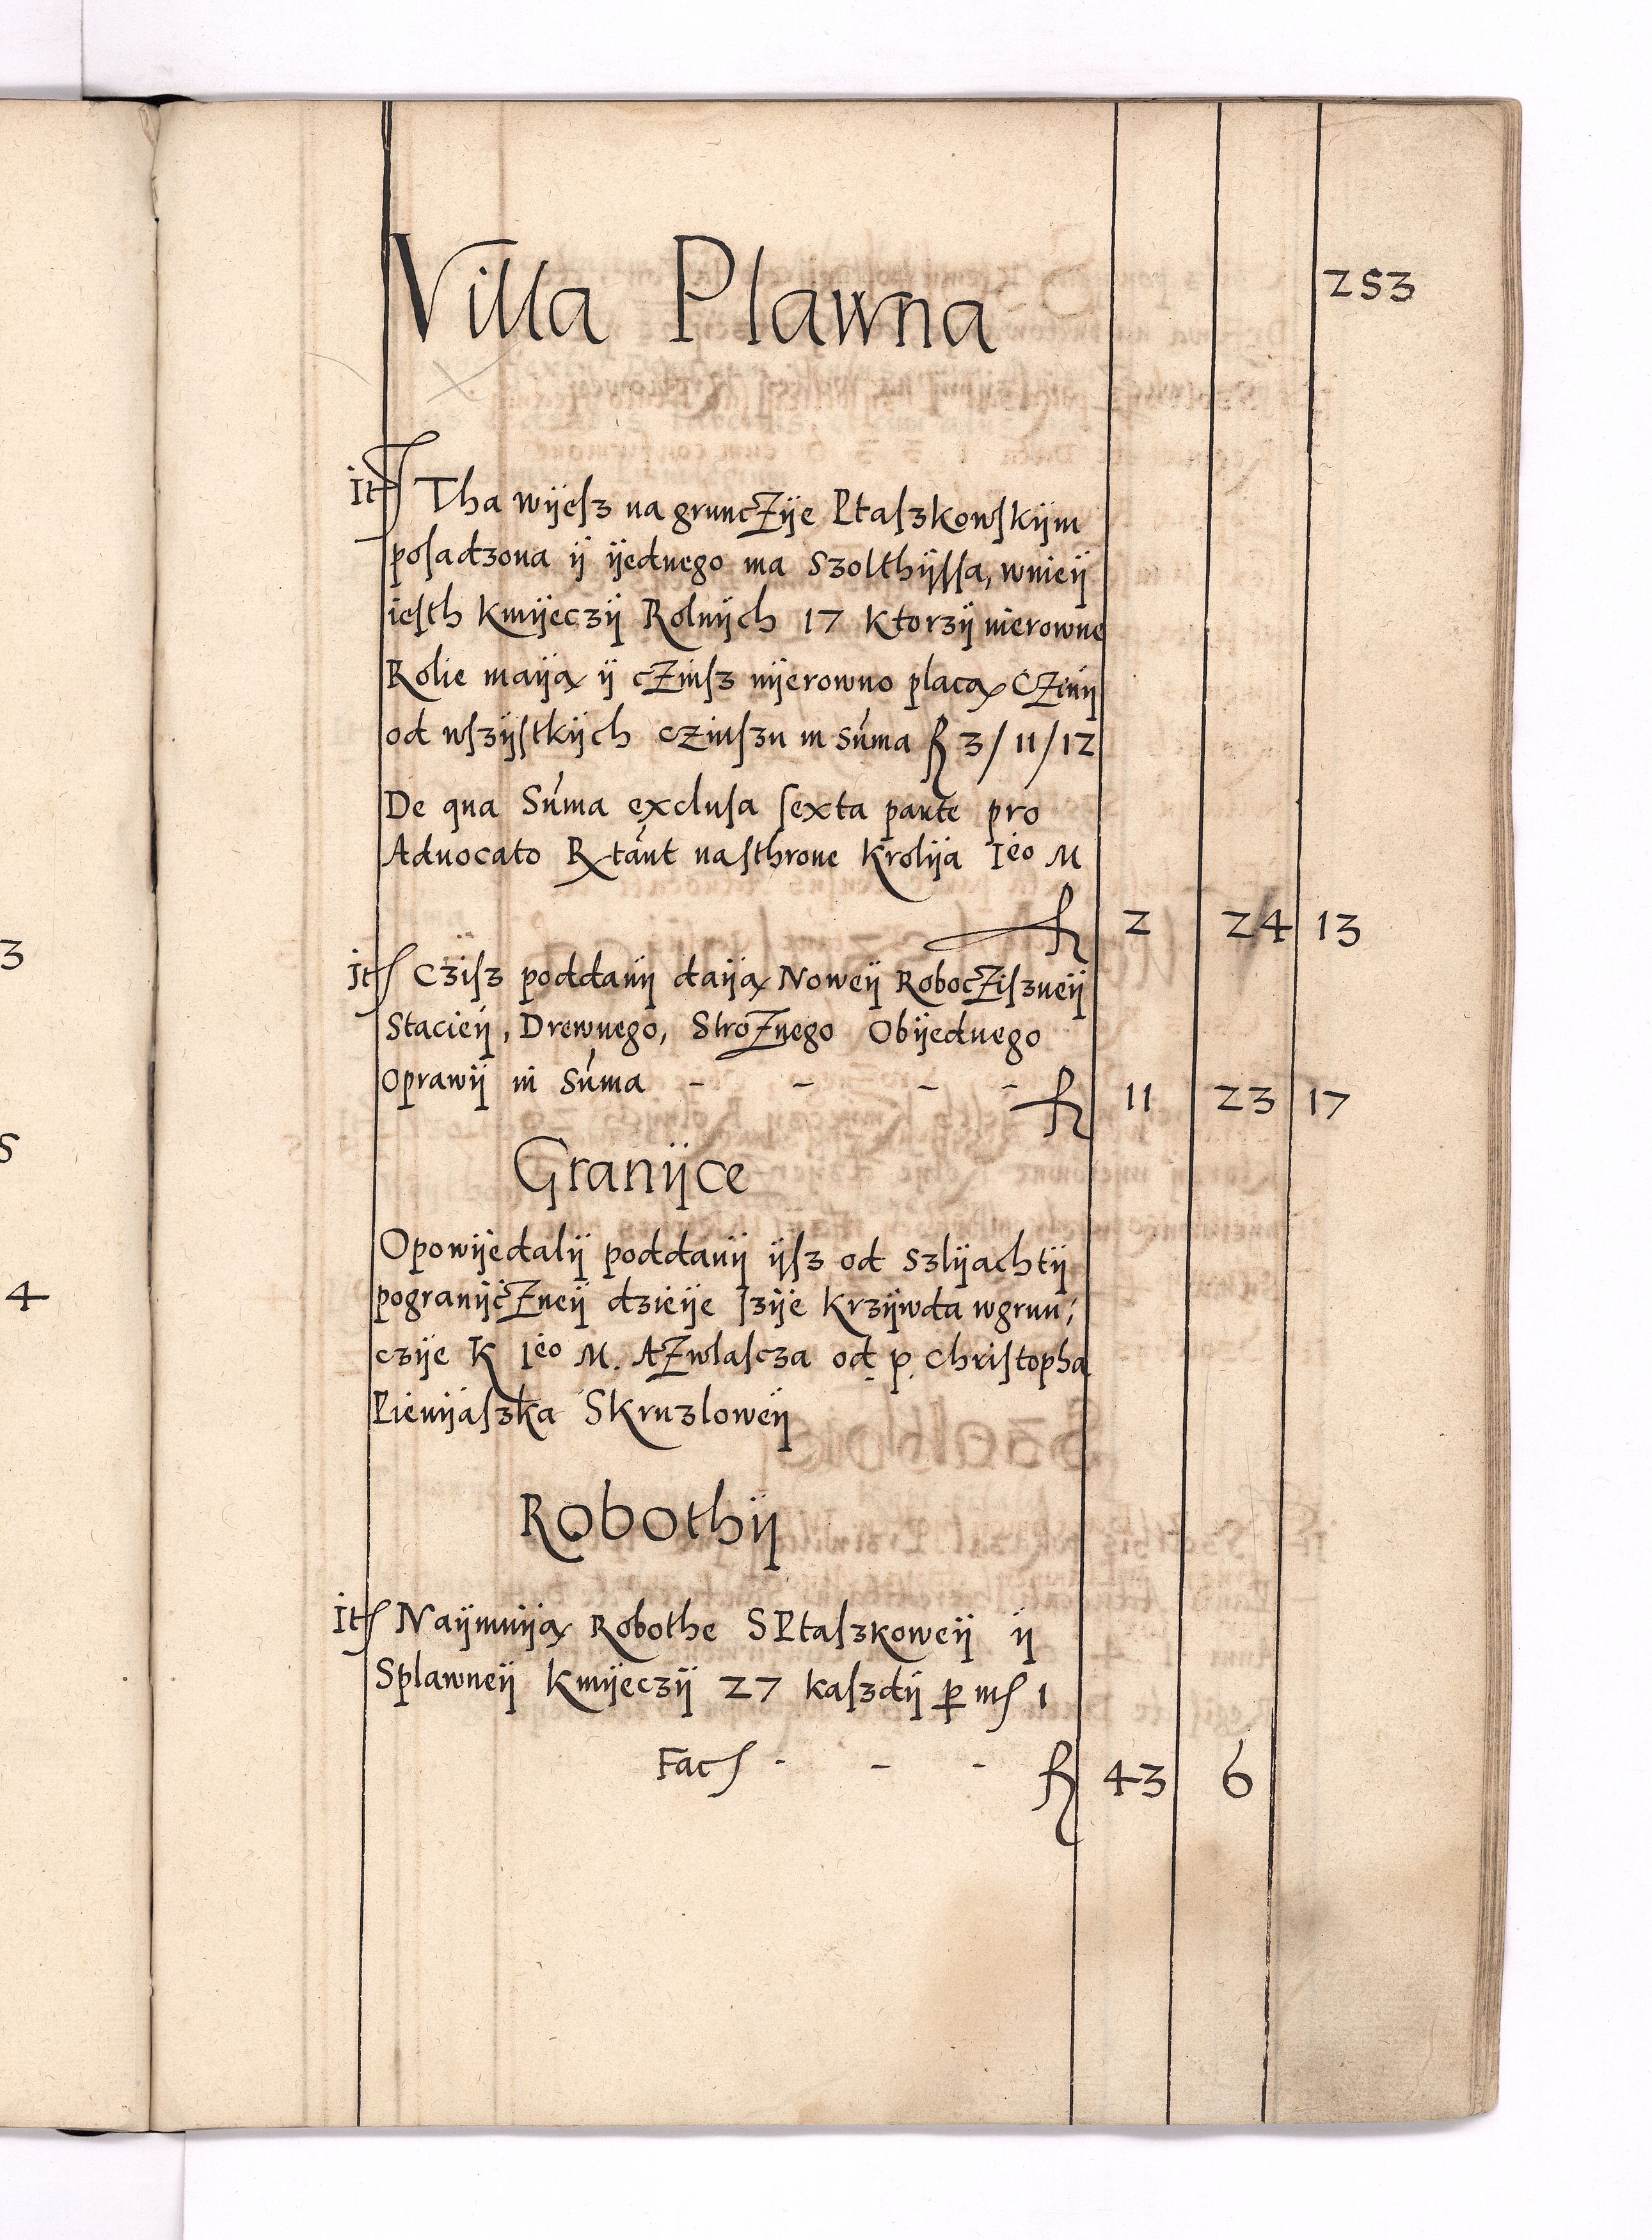 Villa Plawna
253
Itẽ Tha wÿeſz na gruncżÿe Ptaſzkowſkÿm
poſadzona ÿ ÿednego ma Szolthÿſſa, wnieÿ
ieſth Kmÿeczÿ Rolnÿch 17 Ktorzÿ nierowne
Rolie maÿą ÿ cżinſz nÿerowno placą Cżinÿ
od wſzÿſtkÿch czinſzu in Sum̃a fl 3/11/12
De qua Sum̃a excluſa ſexta parte pro
Aduocato Rx̃tant naſthrone Krolÿa Ieo M
fl 2 24 13
Itẽ Cziſz poddanÿ daÿą Noweÿ Robocżiſzneÿ
Stacieÿ, Drewnego, Strożnego Obÿednego
Oprawÿ in Sum̃a - - - - fl 11 23 17
Granÿce
Opowÿedalÿ poddanÿ ÿſz od Szlÿachtÿ
pogranÿcżneÿ dzieÿe ſzÿe Krzÿwda wgrun/
czÿe K Ieo M. Ażwlaſcza od p. Chriſtopha
Pienÿaſzka SKruzloweÿ
Robothÿ
Itẽ Naÿmuÿą Robothe SPtaſzkoweÿ ÿ
Splawneÿ Kmÿeczÿ 27 kaſzdÿ ꝑ mẽ 1
Facẽ - - - fl 43 6
3
5
4